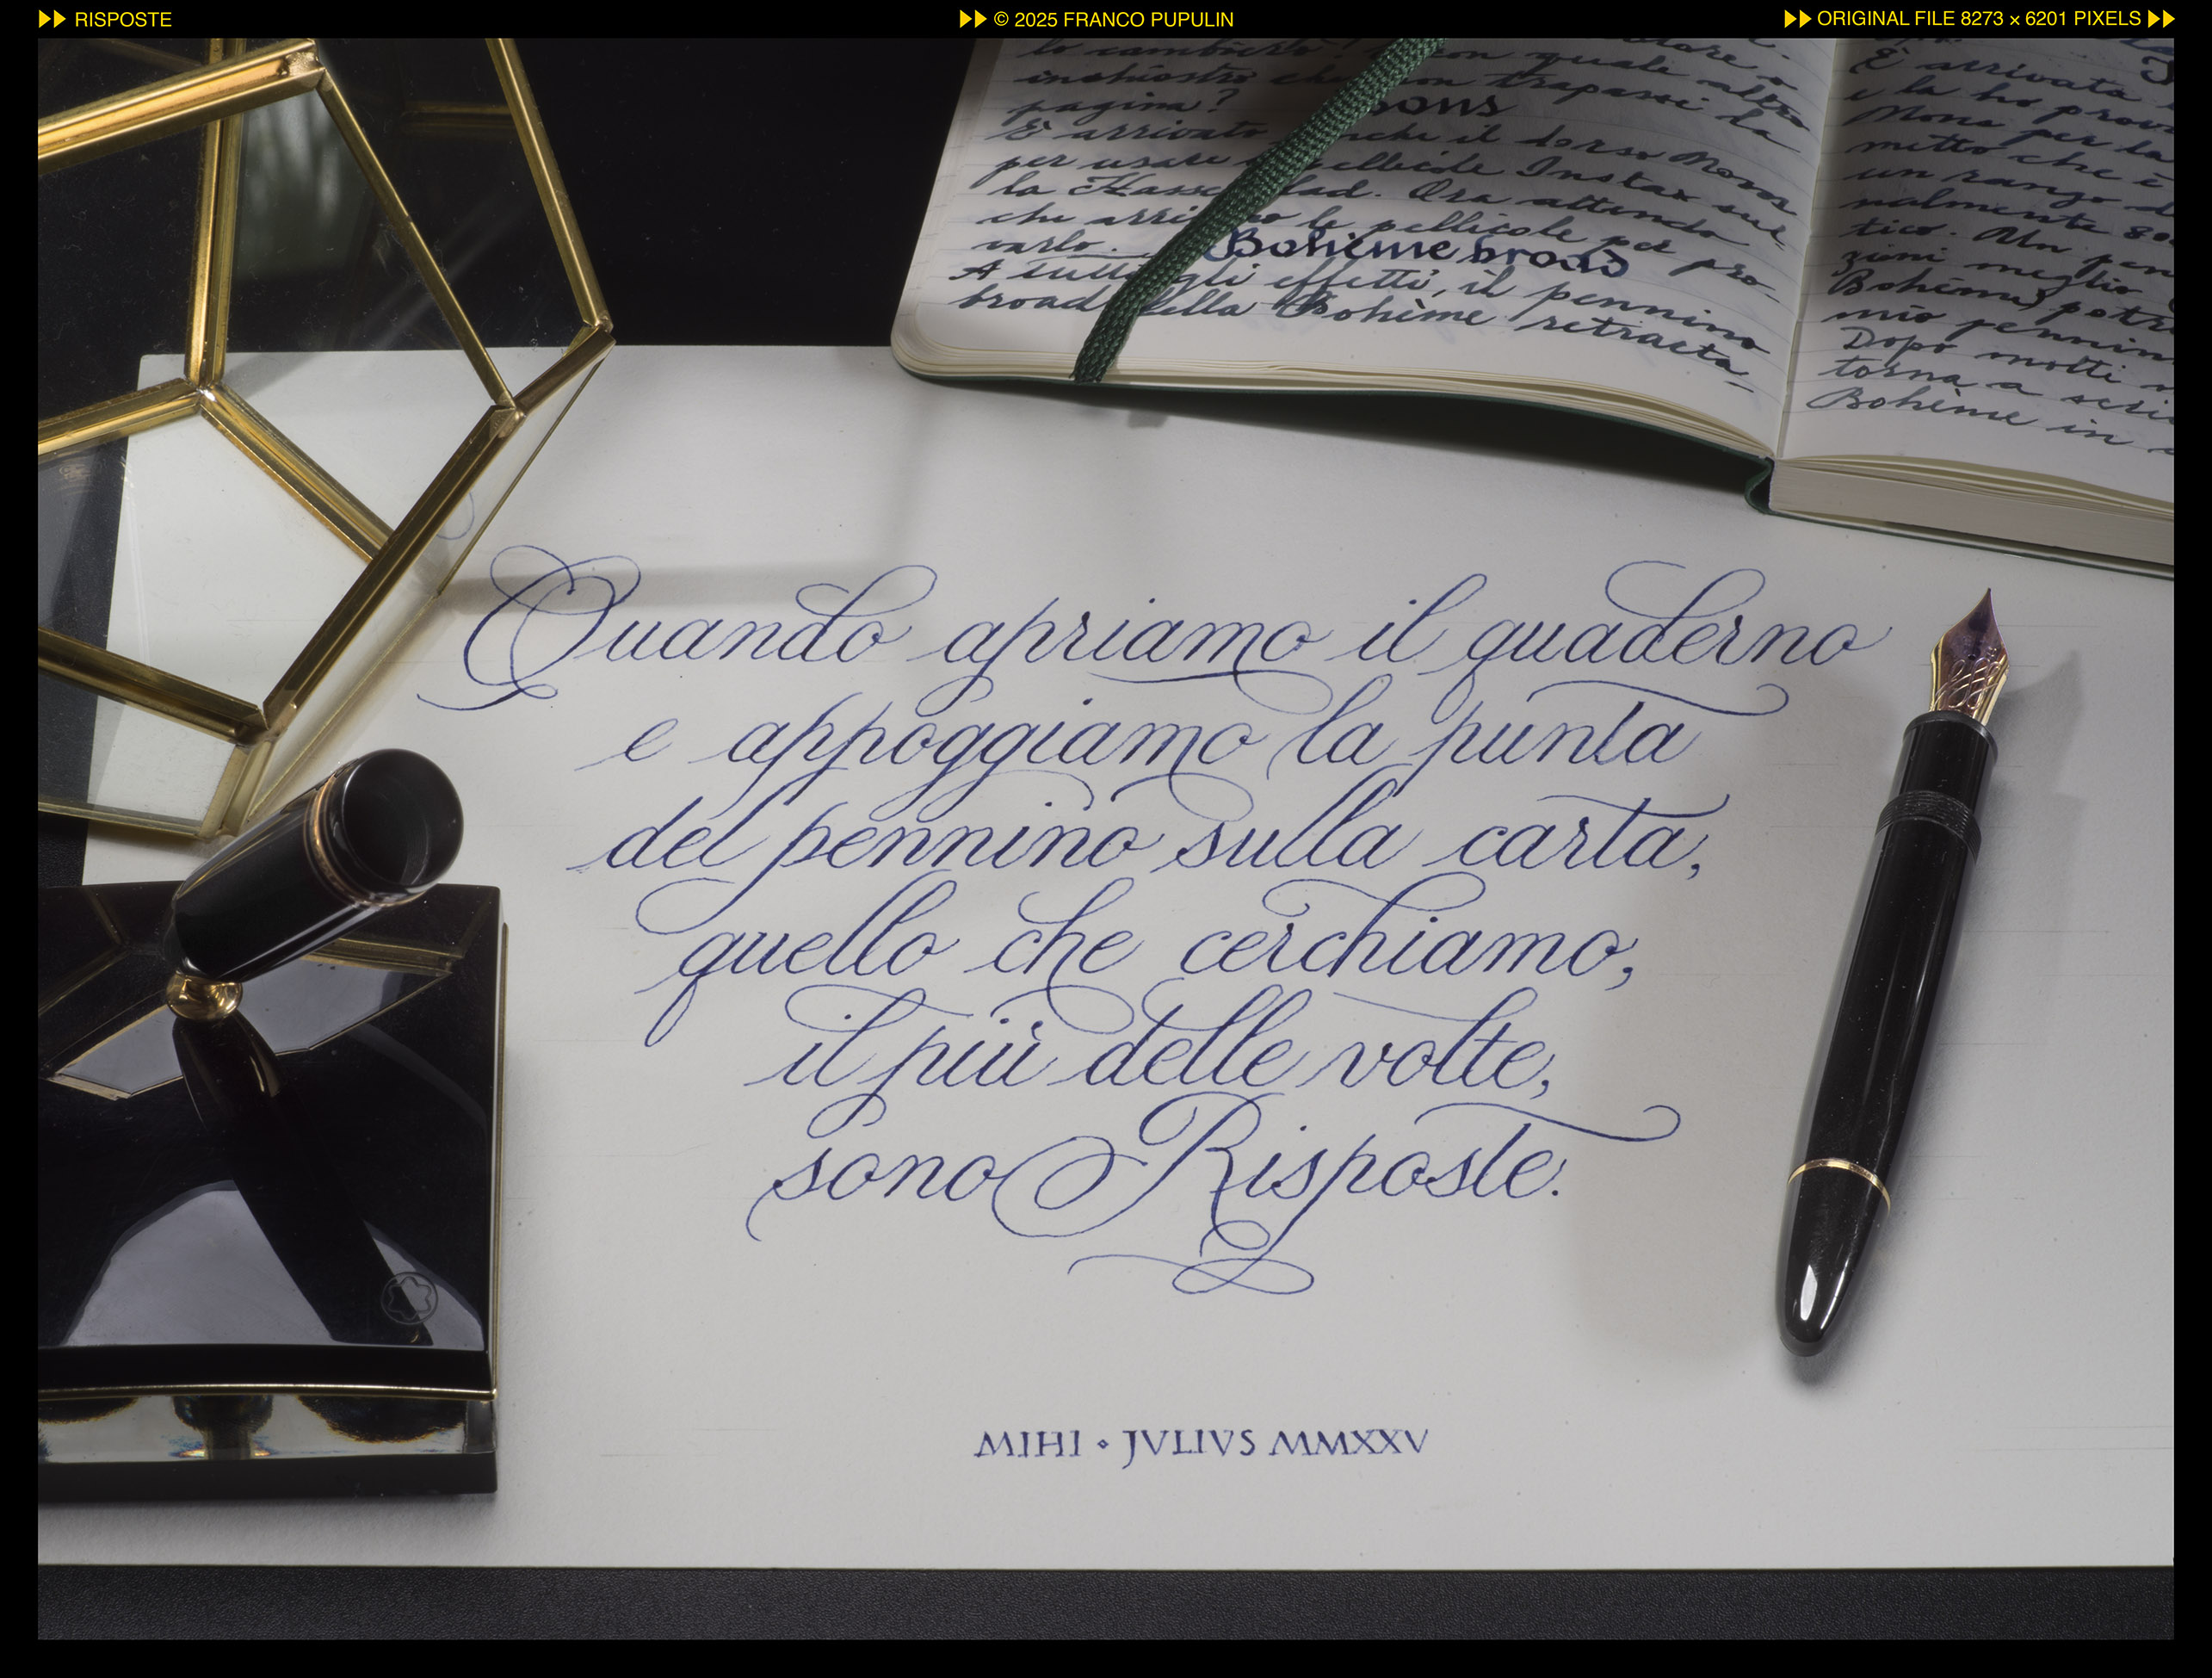 RISPOSTE
© 2025 FRANCO PUPULIN
ORIGINAL FILE 8273 x 6201 PIXELS
lo cambierò?
inchiostro che non trapassi la
pagina?
È arrivato anche il dorso Mona
per usare pellicole Instax sul
la Hasselblad. Ora attendo
che arrivino le pellicole per pro-
varlo.
Bohème broad
A tutti gli effetti, il pennino
broad della Bohème retracta_
È arrivata
e la ho
Mona per la
mitto che è
un rango
nalmente
tico. Un
zioni meglio
Bohème,
mio
Dopo molti
torna a
Bohème in
Quando apriamo il quaderno
e appoggiamo la punta
del pennino sulla carta,
quello che cerchiamo,
il più delle volte,
sono Risposte.
MIHI ⋄ JVLIVS MMXXV